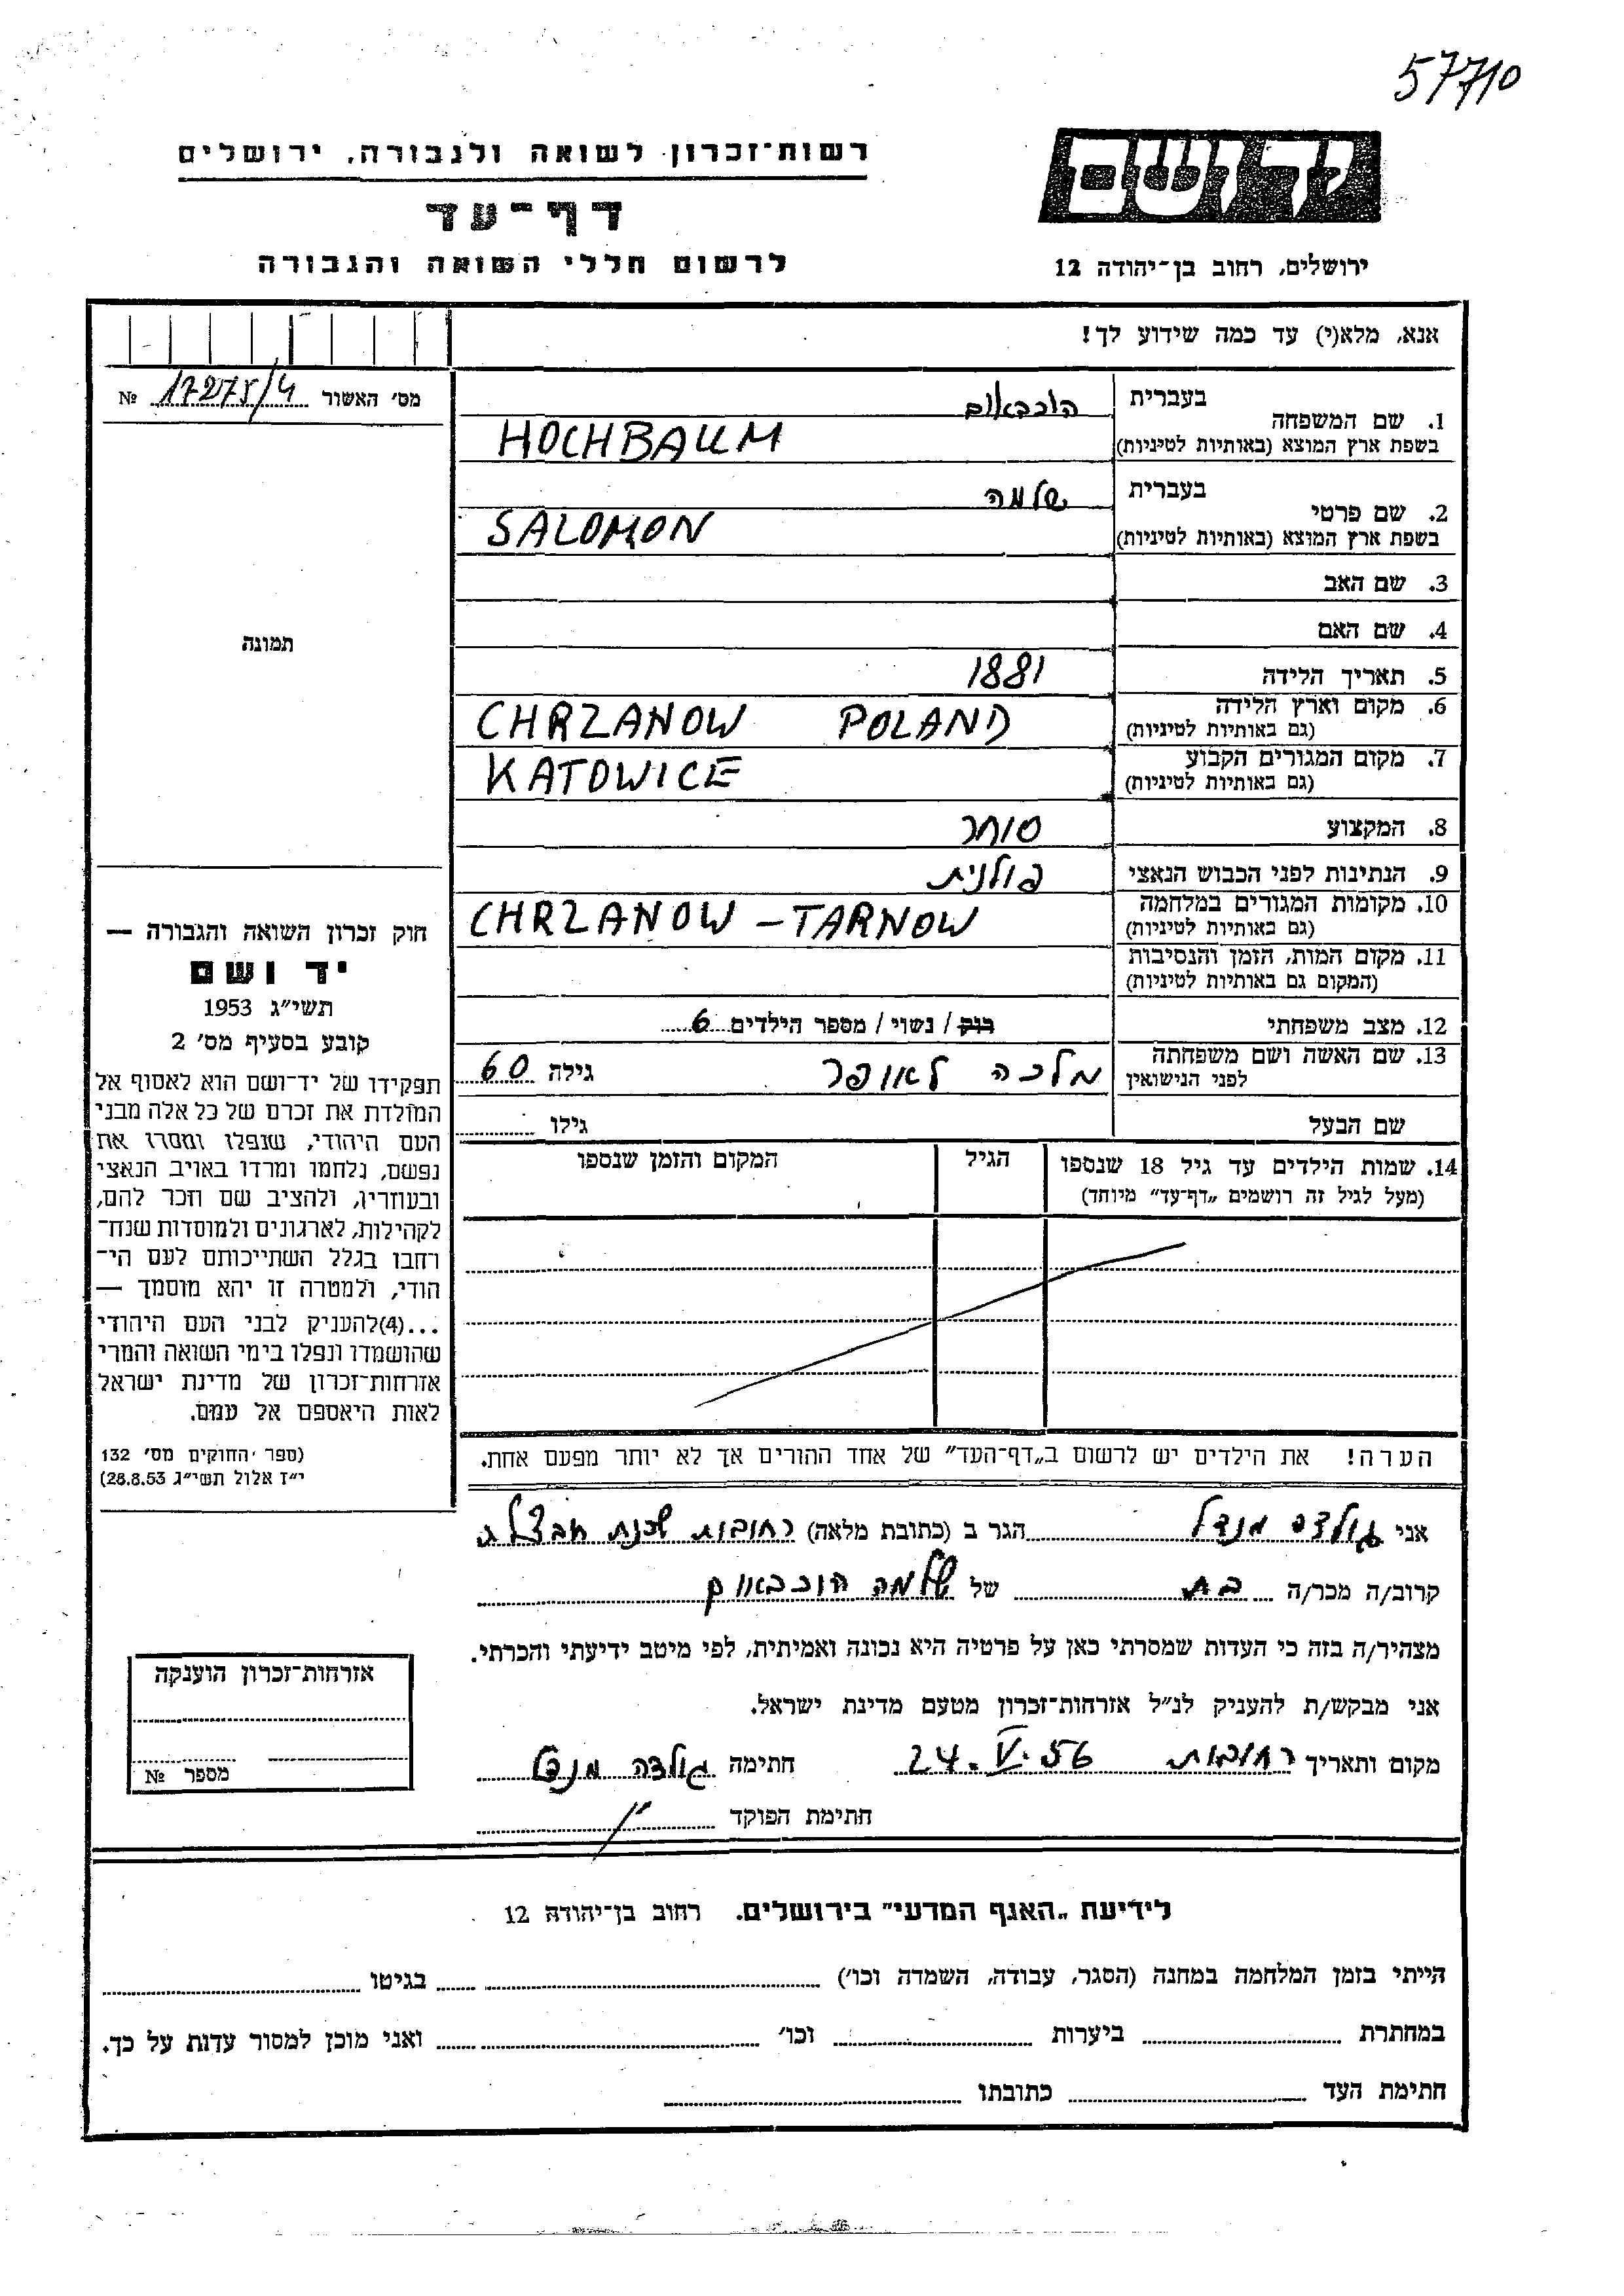 57710
יד ושם
רשות־זכרון לשואה ולגבורה, ירושלים
דף־עד
לרשום חללי השואה והגבורה
ירושלים, רחוב בן־יהודה 12
אנא, מלא(י) עד כמה שידוע לך!
מס׳ האשור 17275/4 №
תמונה
1. שם המשפחה בעברית הוכבאום
בשפת ארץ המוצא (באותיות לטיניות) HOCHBAUM
2. שם פרטי בעברית שלמה
בשפת ארץ המוצא (באותיות לטיניות) SALOMON
3. שם האב
4. שם האם
5. תאריך הלידה 1881
6. מקום וארץ הלידה CHRZANOW POLAND
(גם באותיות לטיניות)
7. מקום המגורים הקבוע KATOWICE
(גם באותיות לטיניות)
8. המקצוע סוחר
9. הנתינות לפני הכבוש הנאצי פולנית
10. מקומות המגורים במלחמה CHRZANOW – TARNOW
(גם באותיות לטיניות)
11. מקום המות, הזמן והנסיבות
(המקום גם באותיות לטיניות)
12. מצב משפחתי רווק / נשוי / מספר הילדים 6
13. שם האשה ושם משפחתה מלכה לאופר גילה 60
לפני הנישואין
שם הבעל גילו
14. שמות הילדים עד גיל 18 שנספו הגיל המקום והזמן שנספו
(מעל לגיל זה רושמים „דף־עד״ מיוחד)
הערה! את הילדים יש לרשום ב„דף־העד״ של אחד ההורים אך לא יותר מפעם אחת.
חוק זכרון השואה והגבורה —
יד ושם
תשי״ג 1953
קובע בסעיף מס׳ 2
תפקידו של יד־ושם הוא לאסוף אל
המולדת את זכרם של כל אלה מבני
העם היהודי, שנפלו ומסרו את
נפשם, נלחמו ומרדו באויב הנאצי
ובעוזריו, ולהציב שם וזכר להם,
לקהילות, לארגונים ולמוסדות שנח־
רבו בגלל השתייכותם לעם הי־
הודי, ולמטרה זו יהא מוסמך —
...(4)להעניק לבני העם היהודי
שהושמדו ונפלו בימי השואה והמרי
אזרחות־זכרון של מדינת ישראל
לאות היאספם אל עמם.
(ספר החוקים מס׳ 132
י״ז אלול תשי״ג 28.8.53)
אני גולדה מנדל הגר ב (כתובת מלאה) רחובות שכונת חבצלת
קרוב/ה מכר/ה בת של שלמה הוכבאום
מצהיר/ה בזה כי העדות שמסרתי כאן על פרטיה היא נכונה ואמיתית, לפי מיטב ידיעתי והכרתי.
אני מבקש/ת להעניק לנ״ל אזרחות־זכרון מטעם מדינת ישראל.
מקום ותאריך רחובות 24.V.56 חתימה גולדה מנדל
חתימת הפוקד
אזרחות־זכרון הוענקה
מספר №
לידיעת „האגף המדעי״ בירושלים. רחוב בן־יהודה 12
הייתי בזמן המלחמה במחנה (הסגר, עבודה, השמדה וכו׳) בגיטו
במחתרת ביערות וכו׳ ואני מוכן למסור עדות על כך.
חתימת העד כתובתו